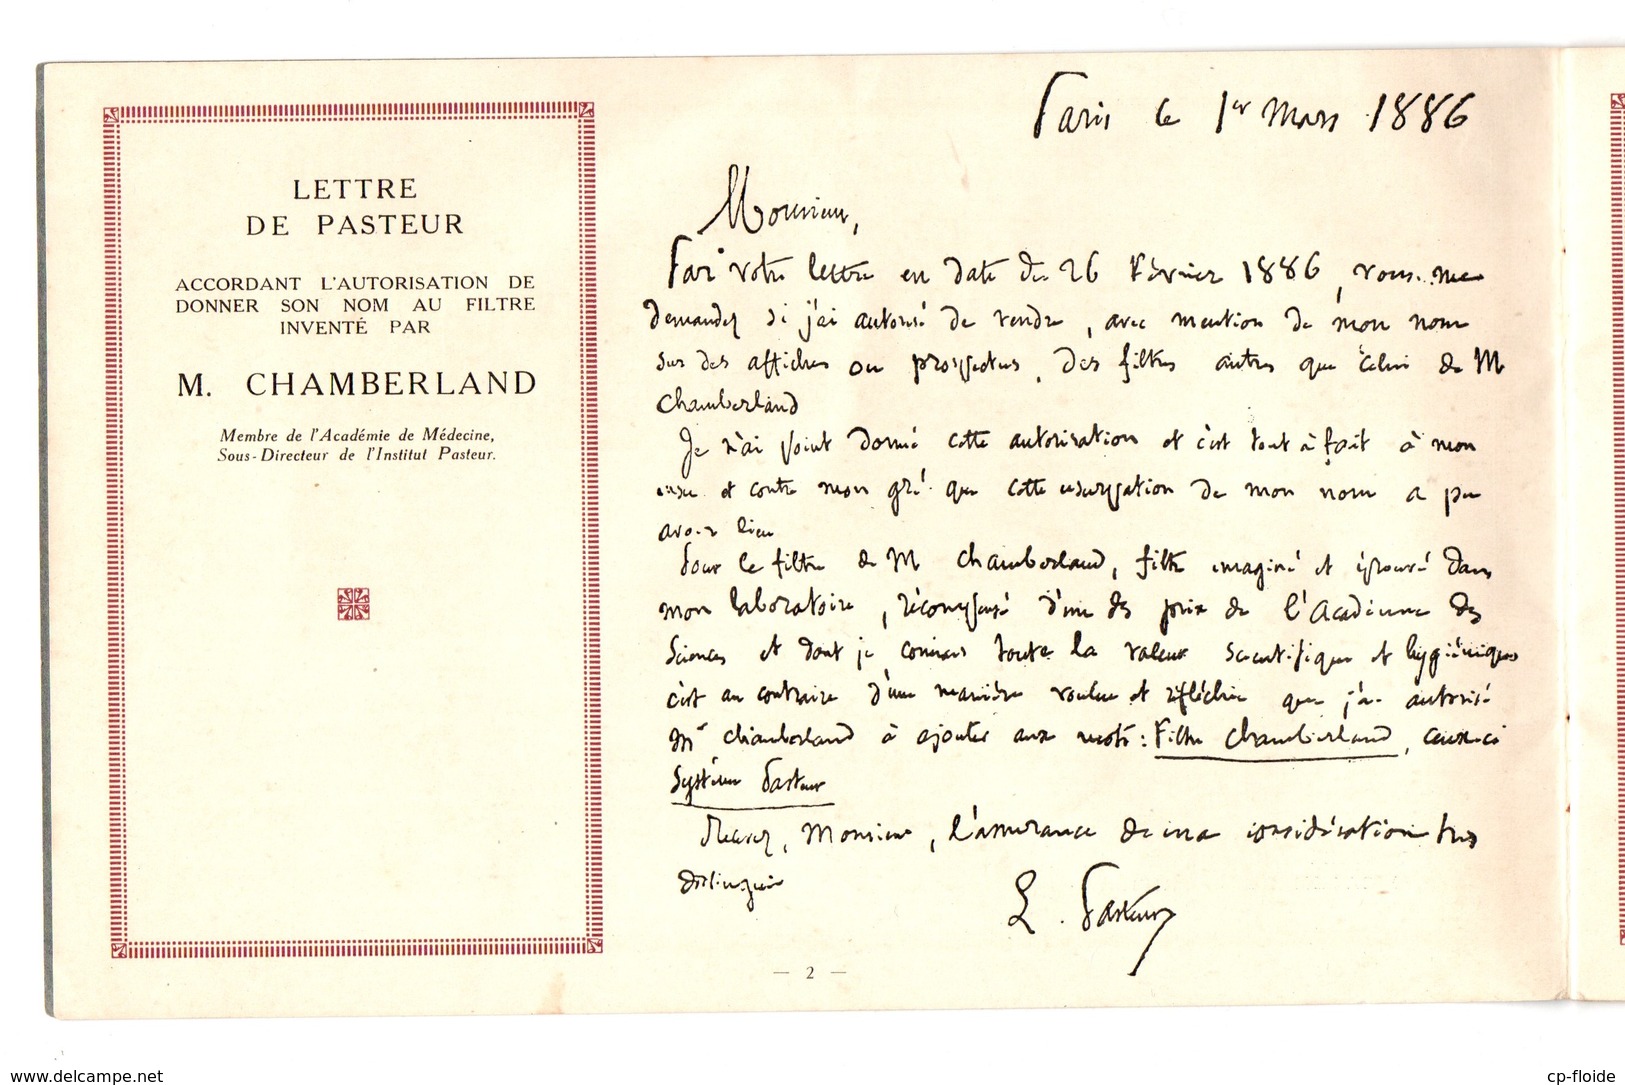 LETTRE
DE PASTEUR
ACCORDANT L'AUTORISATION DE
DONNER SON NOM AU FILTRE
INVENTÉ PAR
M. CHAMBERLAND
Membre de l'Académie de Médecine,
Sous-Directeur de l'Institut Pasteur.
Paris le 1er Mars 1886
Monsieur,
Par votre lettre en date du 26 Février 1886, vous me
demandez si j'ai autorisé de vendre, avec mention de mon nom
sur des affiches ou prospectus, des filtres autres que celui de M
Chamberland
Je n'ai point donné cette autorisation et c'est tout à fait à mon
insu et contre mon gré que cette usurpation de mon nom a pu
avoir lieu
Pour le filtre de M Chamberland, filtre imaginé et éprouvé dans
mon laboratoire, récompensé d'un des prix de l'Académie des
Sciences et dont je connais toute la valeur scientifique et hygiénique
c'est au contraire d'une manière voulue et réfléchie que j'ai autorisé
Mr Chamberland à ajouter aux mots : Filtre Chamberland, ceux-ci
Système Pasteur
Recevez, Monsieur, l'assurance de ma considération très
distinguée
L. Pasteur
— 2 —
www.delcampe.net
cp-floide